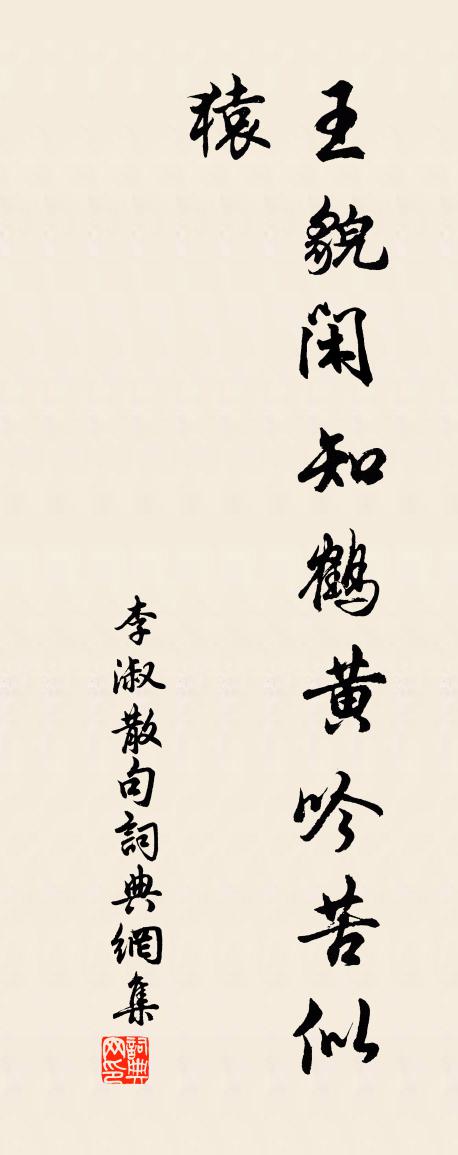 王貌閑知鶴黄吟苦似
猿
李淑散句詞典網集
詞典网印